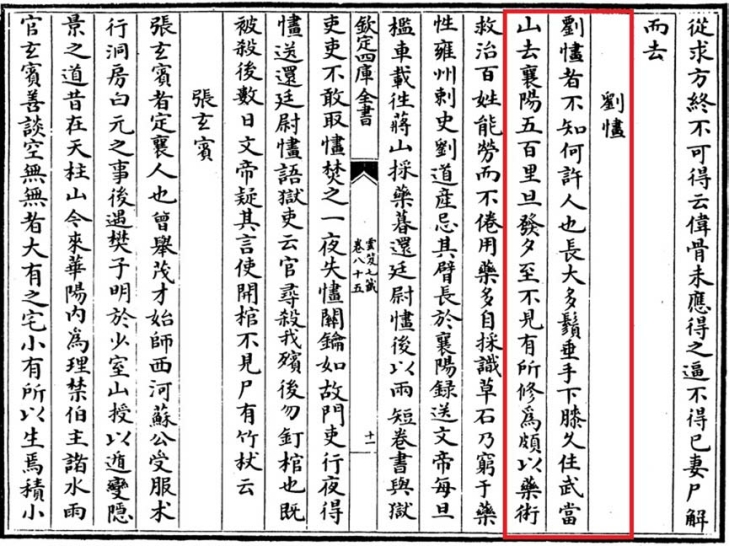 從求方終不可得云偉骨未應得之逼不得已妻尸解
而去
劉㦎
劉㦎者不知何許人也長大多鬚垂手下膝久住武當
山去襄陽五百里旦發夕至不見有所修爲頗以藥術
救治百姓能勞而不倦用藥多自採識草石乃窮于藥
性雍州刺史劉道產忌其臂長於襄陽録送文帝每旦
檻車載徃蔣山採藥暮還廷尉㦎後以兩短卷書與獄
欽定四庫全書
雲笈七籤
卷八十五
十一
吏吏不敢取㦎焚之一夜失㦎關鑰如故門吏行夜得
㦎送還廷尉㦎語獄吏云官尋殺我殯後勿釘棺也既
被殺後數日文帝疑其言使開棺不見尸有竹杖云
張玄賓
張玄賓者定襄人也曾舉茂才始師西河蘇公受服术
行洞房白元之事後遇樊子明於少室山授以遁變隱
景之道昔在天柱山今來華陽内爲理禁伯主諸水雨
官玄賓善談空無無者大有之宅小有所以生焉積小